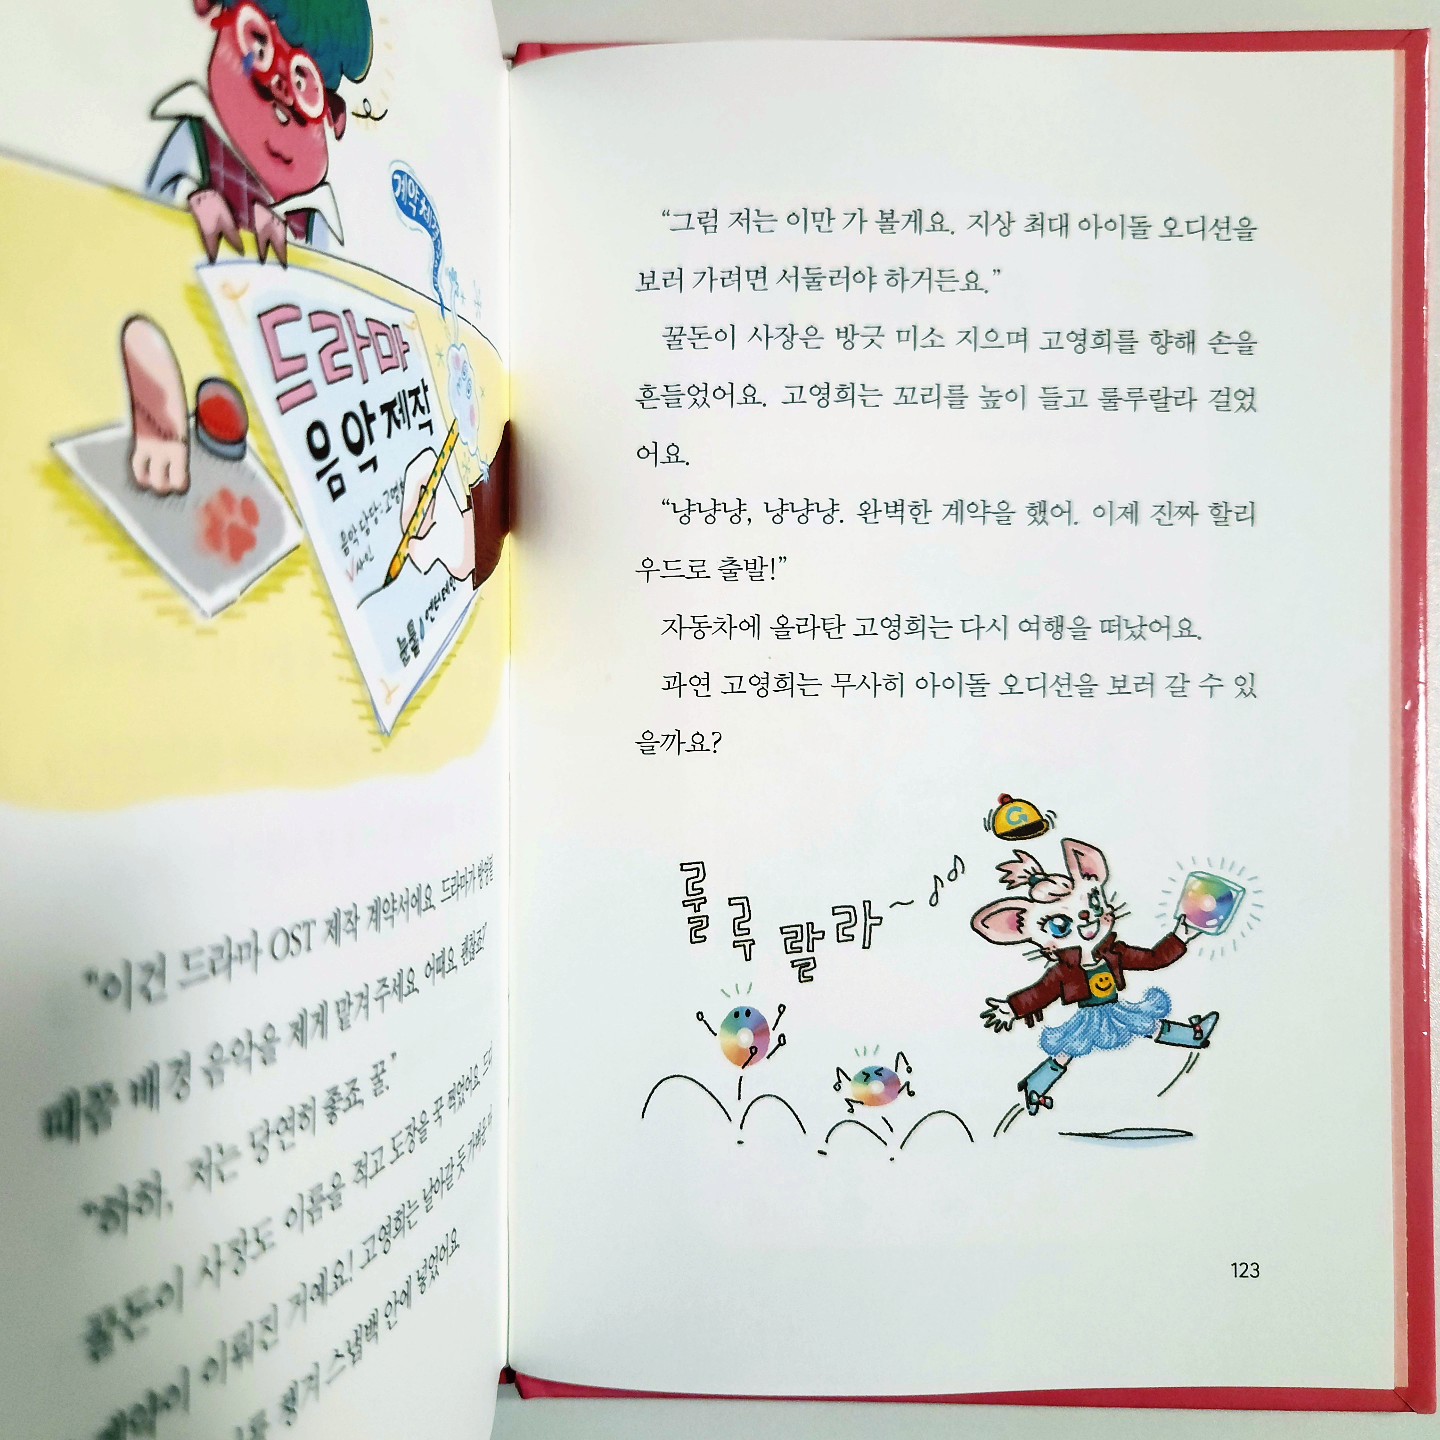 계약 체
드라마
음악 제작
음악 담당: 고영희
사인
눈물 엔터테인
“이건 드라마 OST 제작 계약서예요. 드라마가 방영될
때쯤 배경 음악을 제게 맡겨 주세요. 어때요, 괜찮죠?”
“하하, 저는 당연히 좋죠, 꿀.”
꿀돈이 사장도 이름을 적고 도장을 꾹 찍었어요. 드디
계약이 이뤄진 거예요! 고영희는 날아갈 듯 가벼운
챙겨 스냅백 안에 넣었어요.
“그럼 저는 이만 가 볼게요. 지상 최대 아이돌 오디션을
보러 가려면 서둘러야 하거든요.”
꿀돈이 사장은 방긋 미소 지으며 고영희를 향해 손을
흔들었어요. 고영희는 꼬리를 높이 들고 룰루랄라 걸었
어요.
“냥냥냥, 냥냥냥. 완벽한 계약을 했어. 이제 진짜 할리
우드로 출발!”
자동차에 올라탄 고영희는 다시 여행을 떠났어요.
과연 고영희는 무사히 아이돌 오디션을 보러 갈 수 있
을까요?
룰루랄라~
123